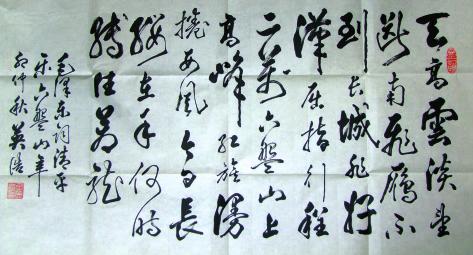 天高雲淡望
断南飛雁不
到长城非好
漢屈指行程
二萬六盤山上
高峰红旗漫
捲西風今日長
缨在手何時
缚住苍龙
毛澤东词清平
乐六盤山辛
卯仲秋英浩